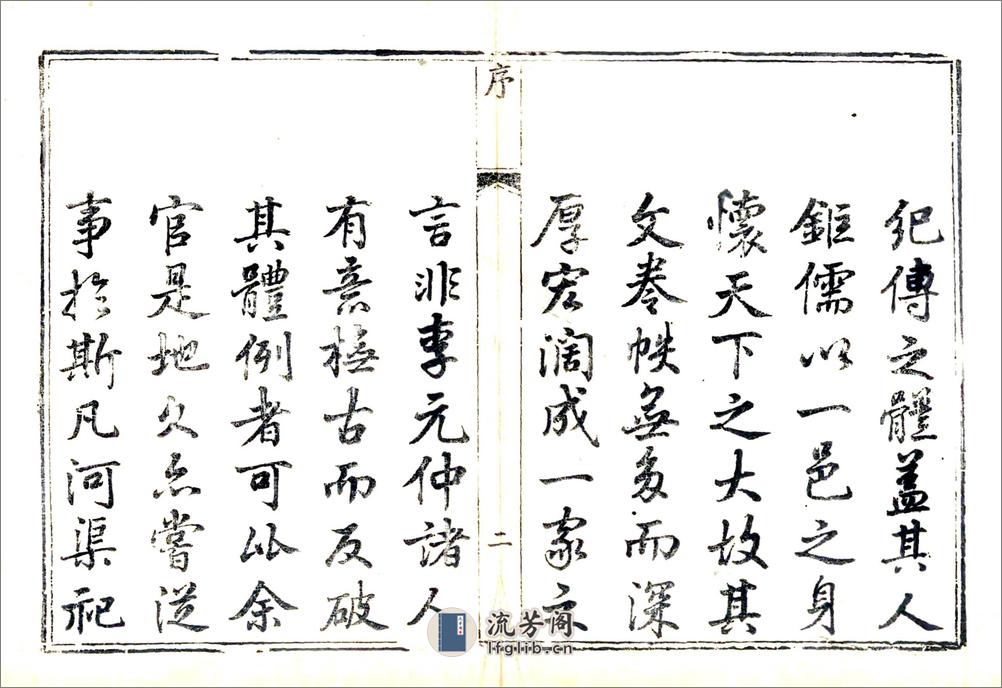 紀傳之體蓋其人
鉅儒以一邑之身
懷天下之大故其
文卷帙無多而深
厚宏濶成一家之
序
二
言非李元仲諸人
有意橅古而反破
其體例者可比余
官是地久亦嘗從
事於斯凡河渠祀
流芳阁
lfglib.cn